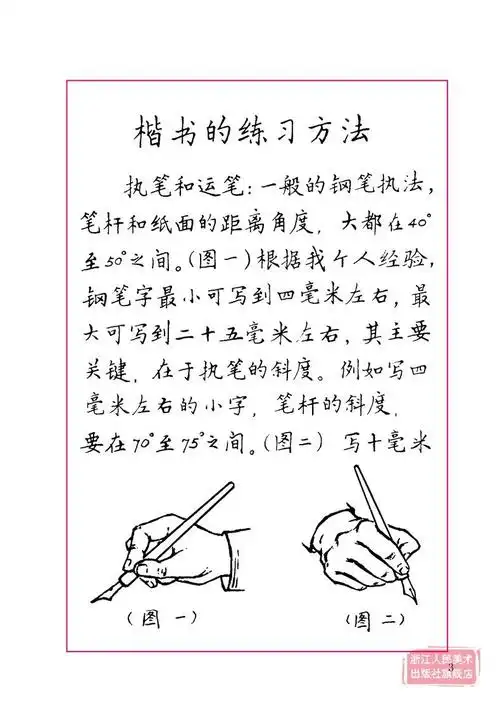 楷书的练习方法
执笔和运笔:一般的钢笔执法,
笔杆和纸面的距离角度,大都在40°
至50°之间。(图一)根据我个人经验,
钢笔字最小可写到四毫米左右,最
大可写到二十五毫米左右,其主要
关键,在于执笔的斜度。例如写四
毫米左右的小字,笔杆的斜度,
要在70°至75°之间。(图二) 写十毫米
(图 一)
(图 二)
3
浙江人民美术
出版社旗舰店